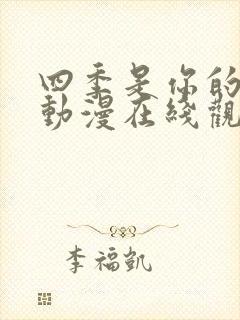 四季是你的
動漫在綫觀
李福凱